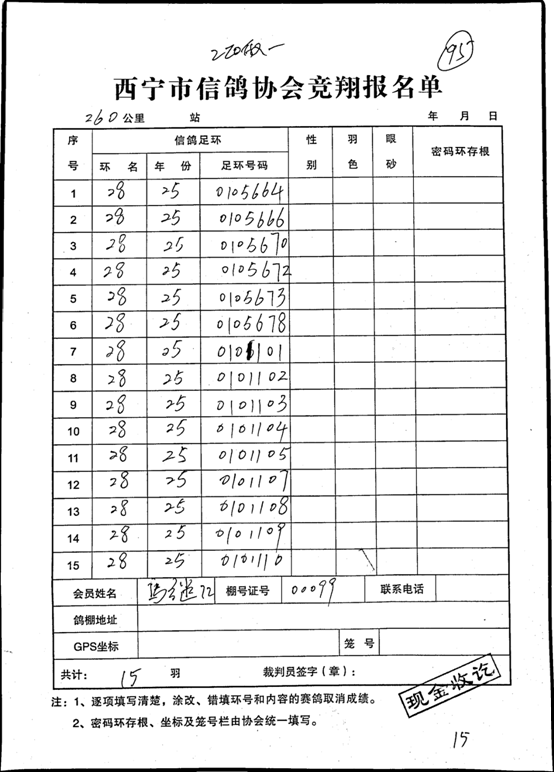 95
西宁市信鸽协会竞翔报名单
260公里 站 年 月 日
序号 信鸽足环 性别 羽色 眼砂 密码环存根
环 名 年 份 足环号码
1 28 25 0105664
2 28 25 0105666
3 28 25 0105670
4 28 25 0105672
5 28 25 0105673
6 28 25 0105678
7 28 25 0101101
8 28 25 0101102
9 28 25 0101103
10 28 25 0101104
11 28 25 0101105
12 28 25 0101107
13 28 25 0101108
14 28 25 0101109
15 28 25 0101110
会员姓名 马 棚号证号 00099 联系电话
鸽棚地址
GPS坐标 笼 号
共计： 15 羽 裁判员签字（章）：
现金收讫
注：1、逐项填写清楚，涂改、错填环号和内容的赛鸽取消成绩。
2、密码环存根、坐标及笼号栏由协会统一填写。
15